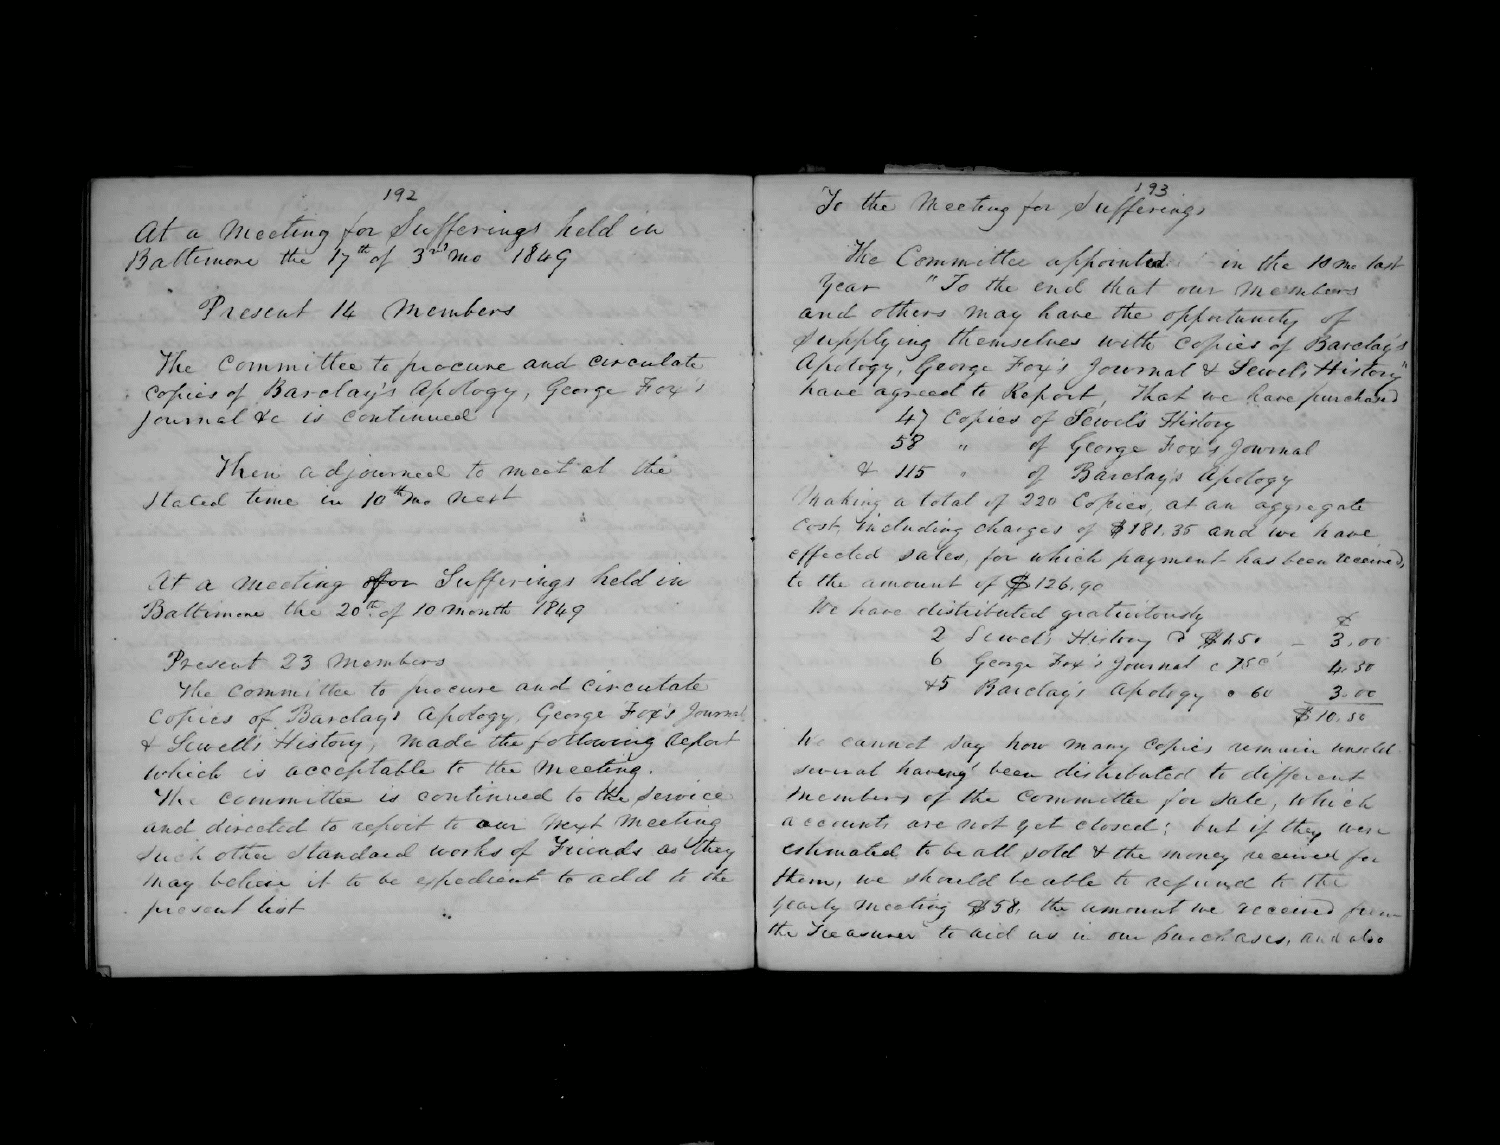 192
At a Meeting for Sufferings held in
Baltimore the 17th of 3rd mo 1849
Present 14 Members
The Committee to procure and circulate
copies of Barclay's Apology, George Fox's
Journal &c is continued
Then adjourned to meet at the
Stated time in 10th mo next
At a Meeting for Sufferings held in
Baltimore the 20th of 10 month 1849
Present 23 Members
The Committee to procure and circulate
copies of Barclays Apology, George Fox's Journal
& Sewell's History, made the following report
which is acceptable to the Meeting.
The Committee is continued to the service
and directed to report to our next Meeting
such other standard works of Friends as they
may believe it to be expedient to add to the
present list
193
To the Meeting for Sufferings
The Committee appointed in the 10 mo last
Year "To the end that our Members
and others may have the opportunity of
supplying themselves with copies of Barclay's
Apology, George Fox's Journal & Sewel's History"
have agreed to Report, That we have purchased
47 Copies of Sewel's History
58 " of George Fox's Journal
& 115 " of Barclay's Apology
Making a total of 220 Copies, at an aggregate
cost, including charges of $181.35 and we have
effected sales, for which payment has been received,
to the amount of $126.90
We have distributed gratuitously $
2 Sewel's History @ $1.50 – 3.00
6 George Fox's Journal @ 75c 4.50
&5 Barclay's Apology @ 60 3.00
$10.50
We cannot say how many copies remain unsold
several having been distributed to different
members of the Committee for sale, which
accounts are not yet closed; but if they were
estimated to be all sold & the money received for
them, we should be able to refund to the
yearly meeting $58, the amount we received from
the Treasurer to aid us in our purchases, and also